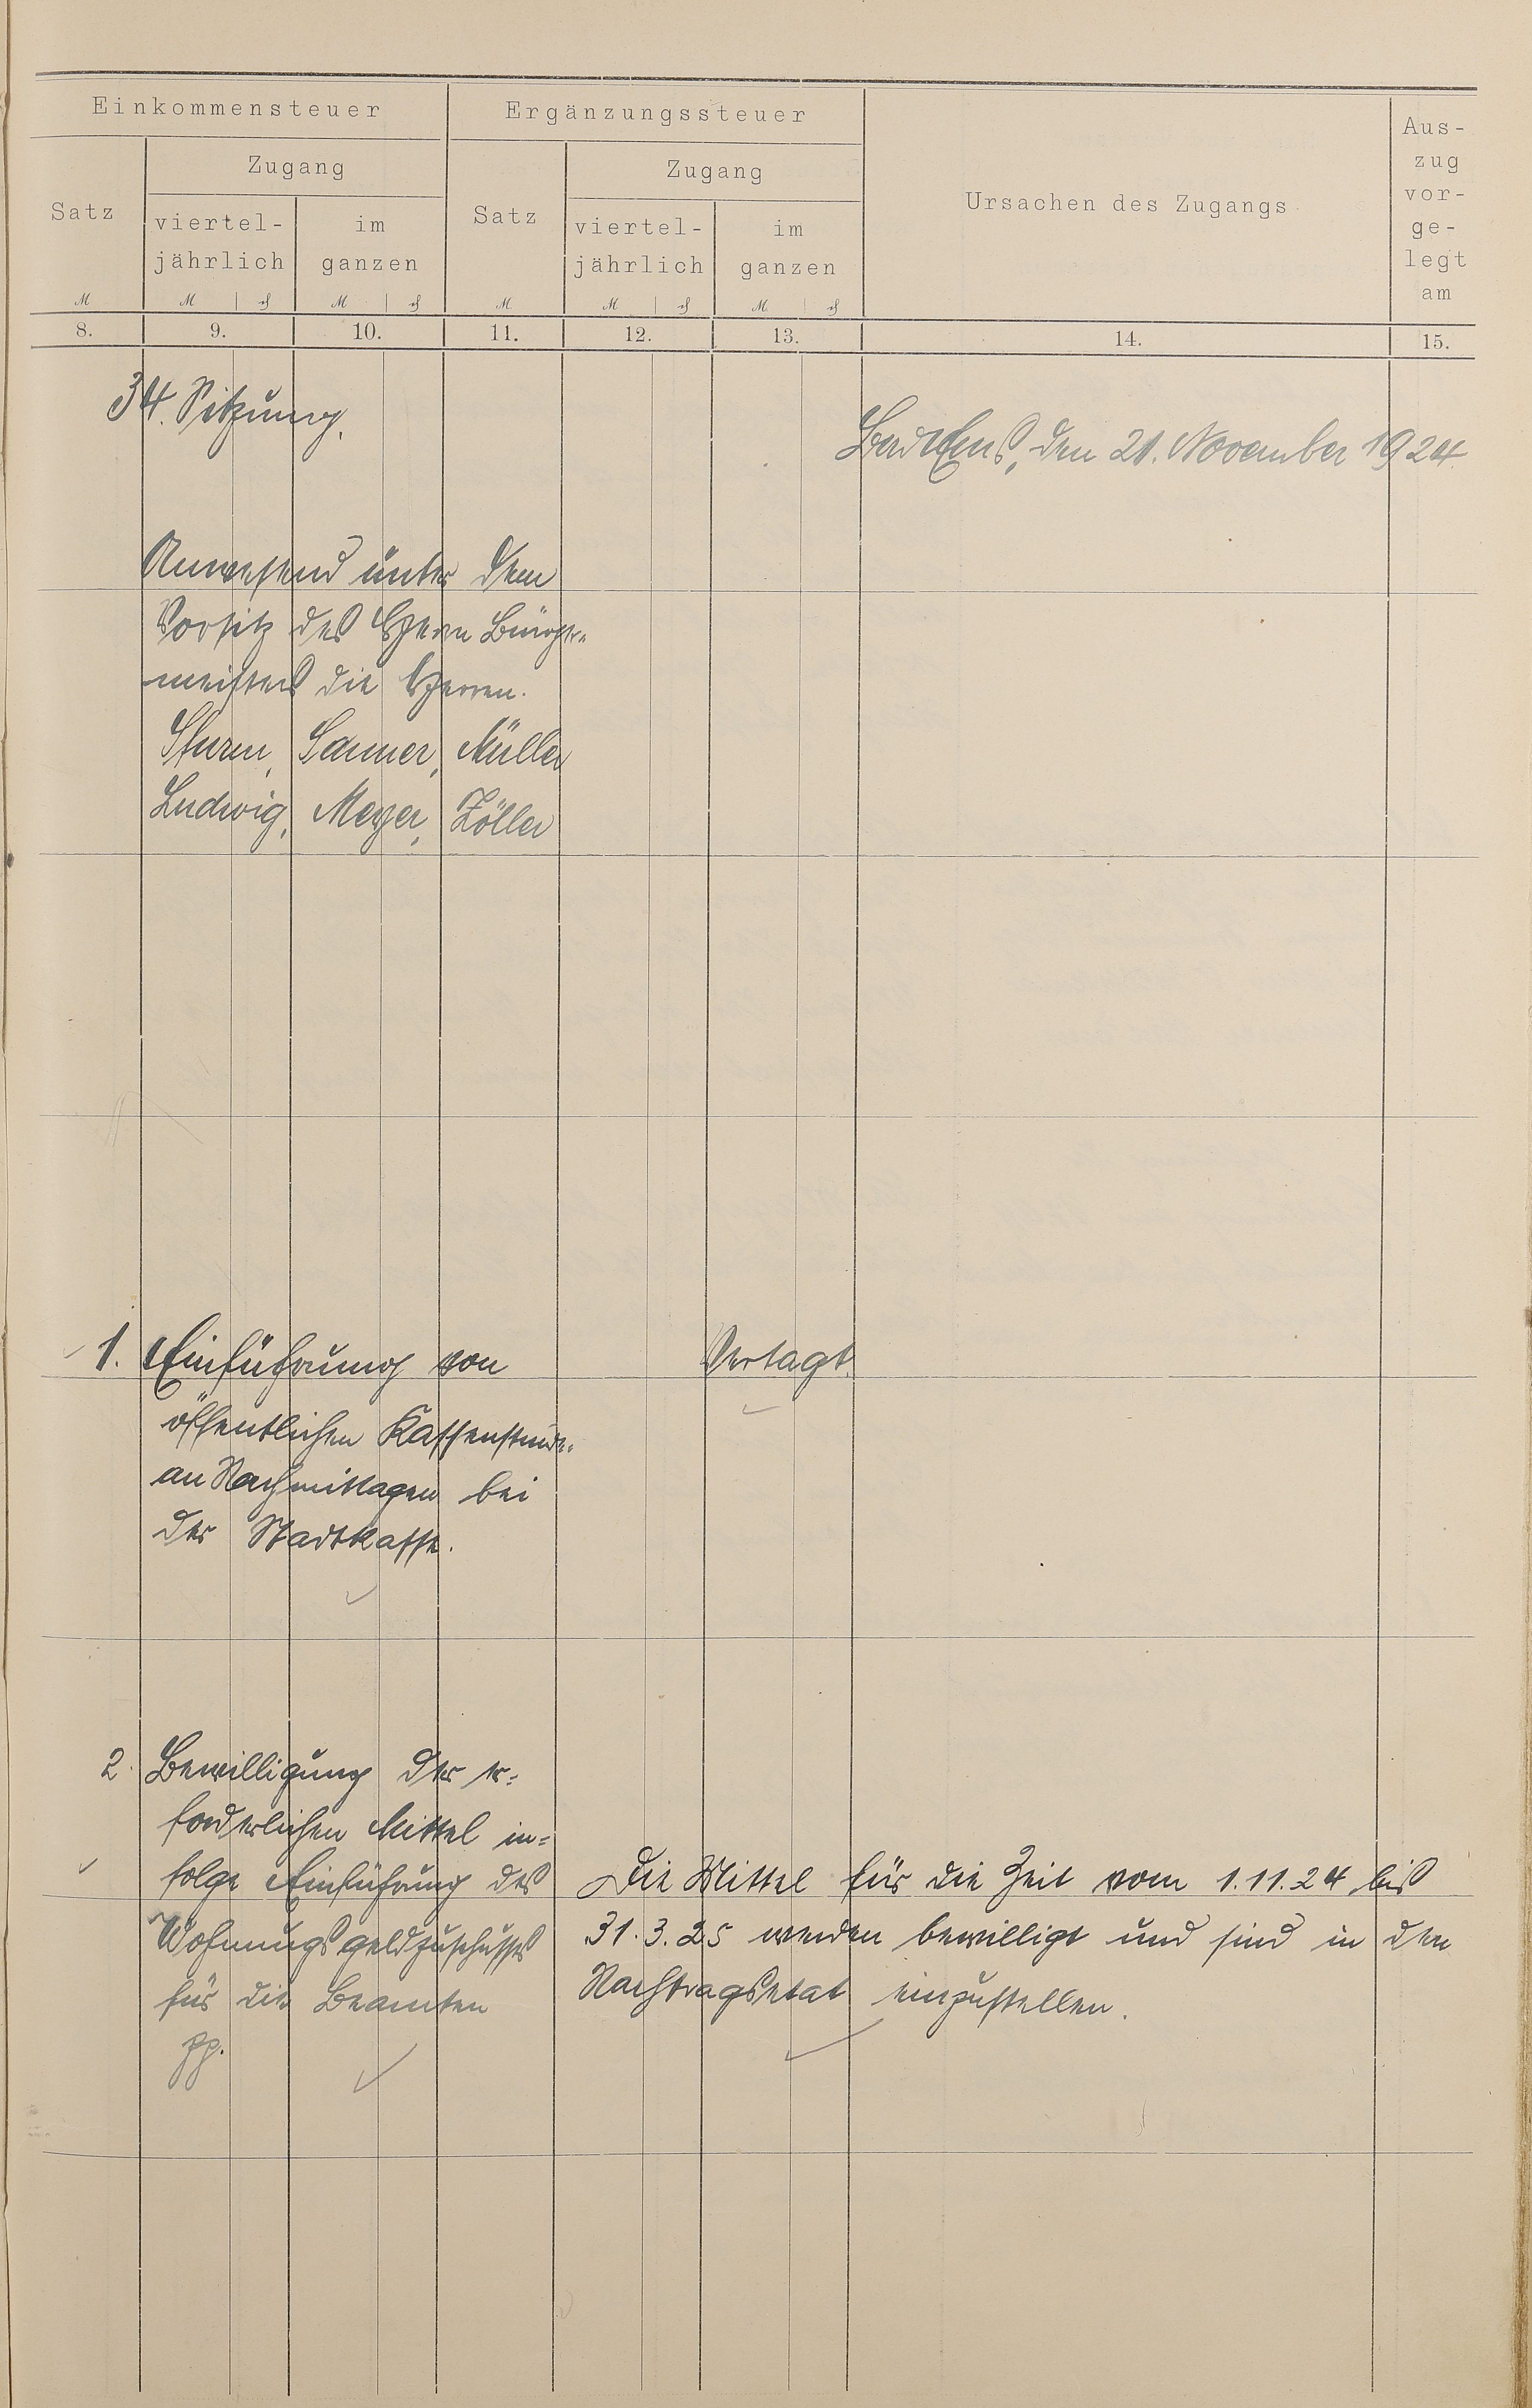 Einkommensteuer
Ergänzungssteuer
Ursachen des Zugangs
Aus-
zug
vor-
ge-
legt
am
Satz
Zugang
viertel-
jährlich
im
ganzen
Satz
Zugang
viertel-
jährlich
im
ganzen
M M ₰ M ₰ M M ₰ M ₰
8. 9. 10. 11. 12. 13. 14. 15.
34. Sitzung.
Bad Ems, den 21. November 1924
Anwesend unter dem
Vorsitz des Herrn Bürger-
meisters die Herren.
Sturm, Sanner, Müller
Ludwig, Meyer, Zöller
1. Einführung von
öffentlichen Kassenstund.
an Nachmittagen bei
der Stadtkasse.
Vertagt.
2. Bewilligung der er=
forderlichen Mittel in=
folge Einführung des
Wohnungsgeldzuschusses
für die Beamten
pp.
Die Mittel für die Zeit vom 1.11.24 bis
31.3.25 werden bewilligt und sind in den
Nachtragsetat einzustellen.